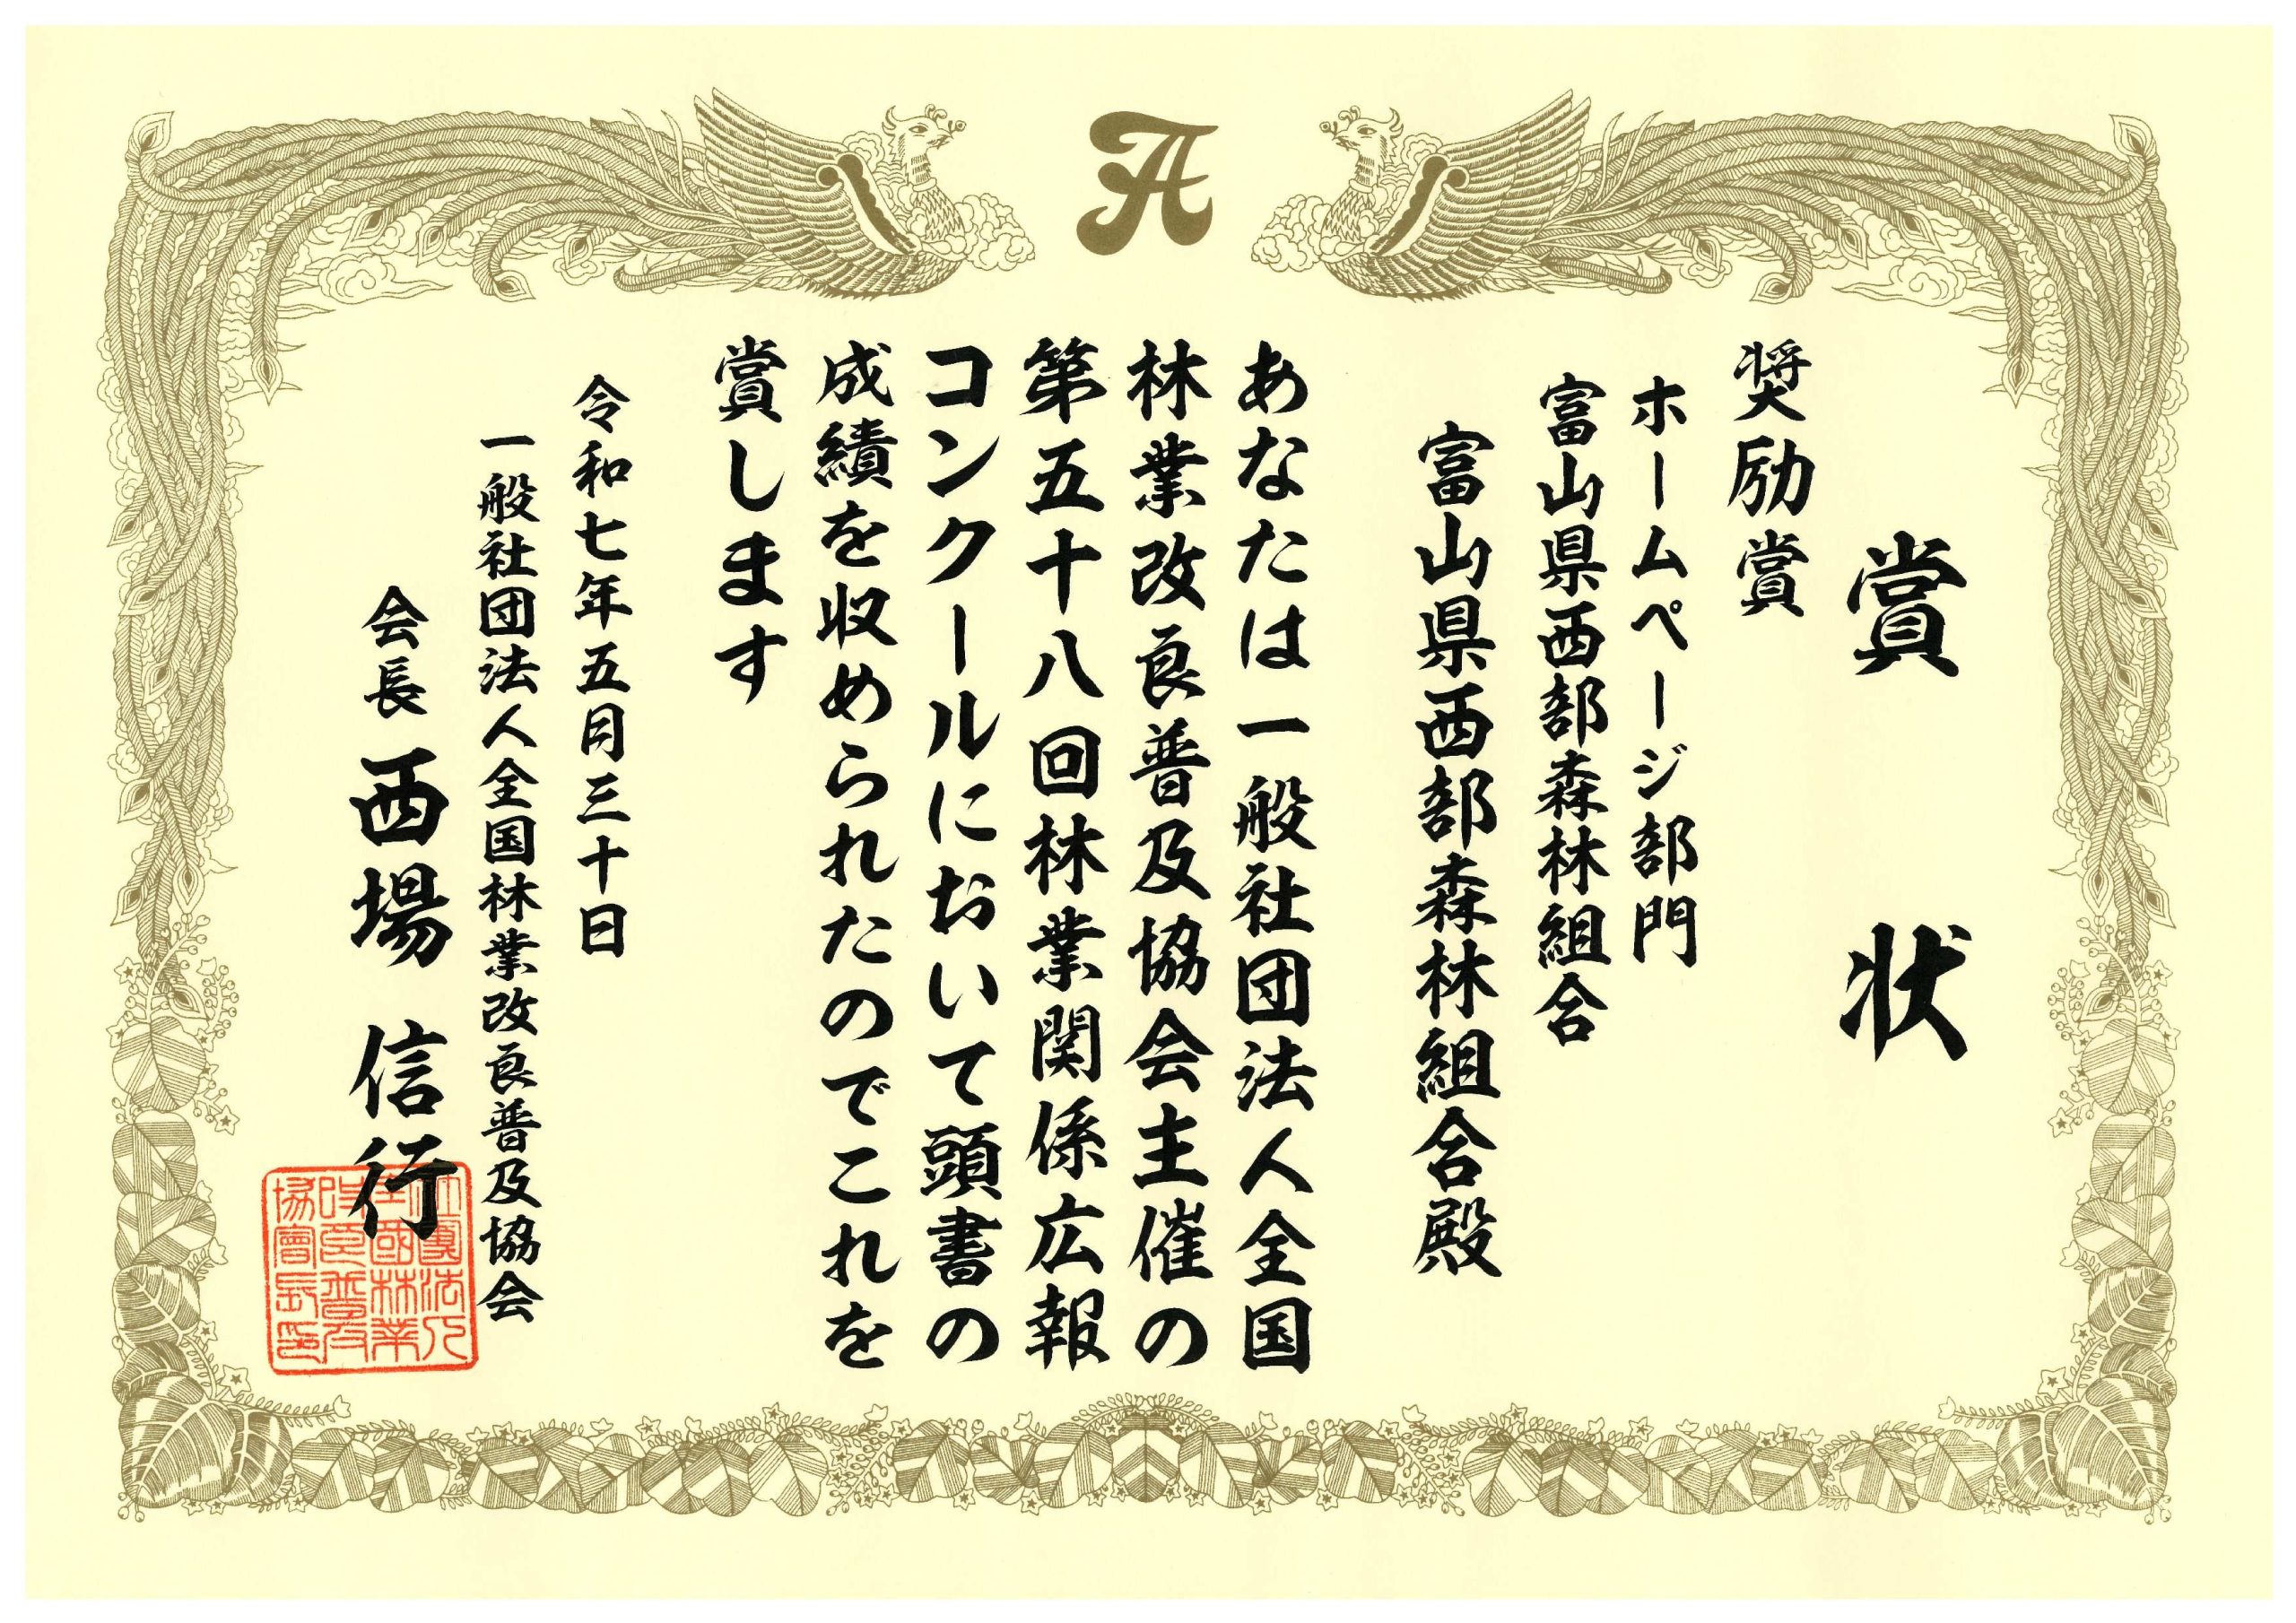 賞状
奨励賞
ホームページ部門
富山県西部森林組合
富山県西部森林組合殿
あなたは一般社団法人全国
林業改良普及協会主催の
第五十八回林業関係広報
コンクールにおいて頭書の
成績を収められたのでこれを
賞します
令和七年五月三十日
一般社団法人全国林業改良普及協会
会長 西場 信行
社團法人
全國林業
改良普及
協會長印